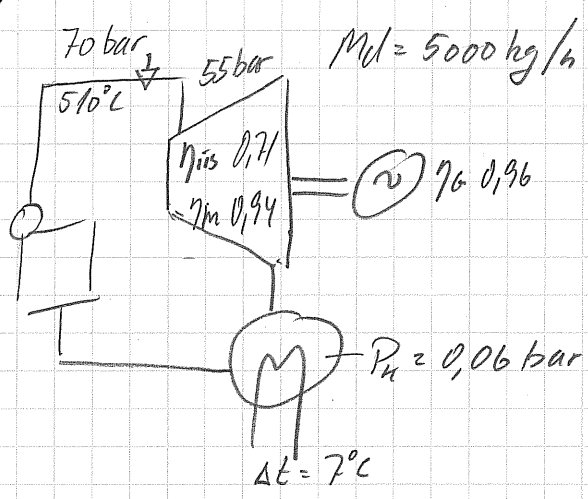 70 bar
55 bar
Md = 5000 kg/h
510°C
ηiis 0,71
ηm 0,94
~
ηG 0,96
PK = 0,06 bar
Δt = 7°C